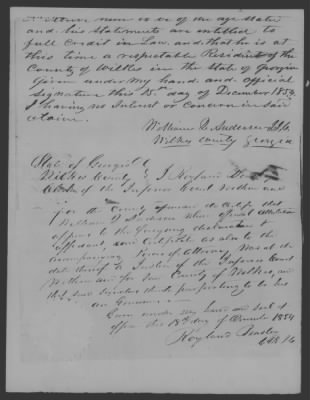 and his Statements are entitled to
full Credit in Law, and that he is at
this time a respectable Resident of the
County of Wilkes in the State of Georgia
Given under my hand and official
Signature this 15th day of December 1854
I having no Interest or Concern in said
Claim.
William D. Anderson
Wilkes County Georgia
State of Georgia
Wilkes County I Royland
Clerk of the Inferior Court Within and
for the County aforesaid do Certify that
William D. Anderson whose official
appears to the foregoing declaration &
affidavit, and Certificate as also to the
accompanying Power of Attorney, Was at the
date thereof a Justice of the Inferior Court
Within and for Said County of Wilkes, and
that Said Signature thereto purporting to be his
are Genuine
Given under my hand and seal of
office this 18th day of December 1854
Royland